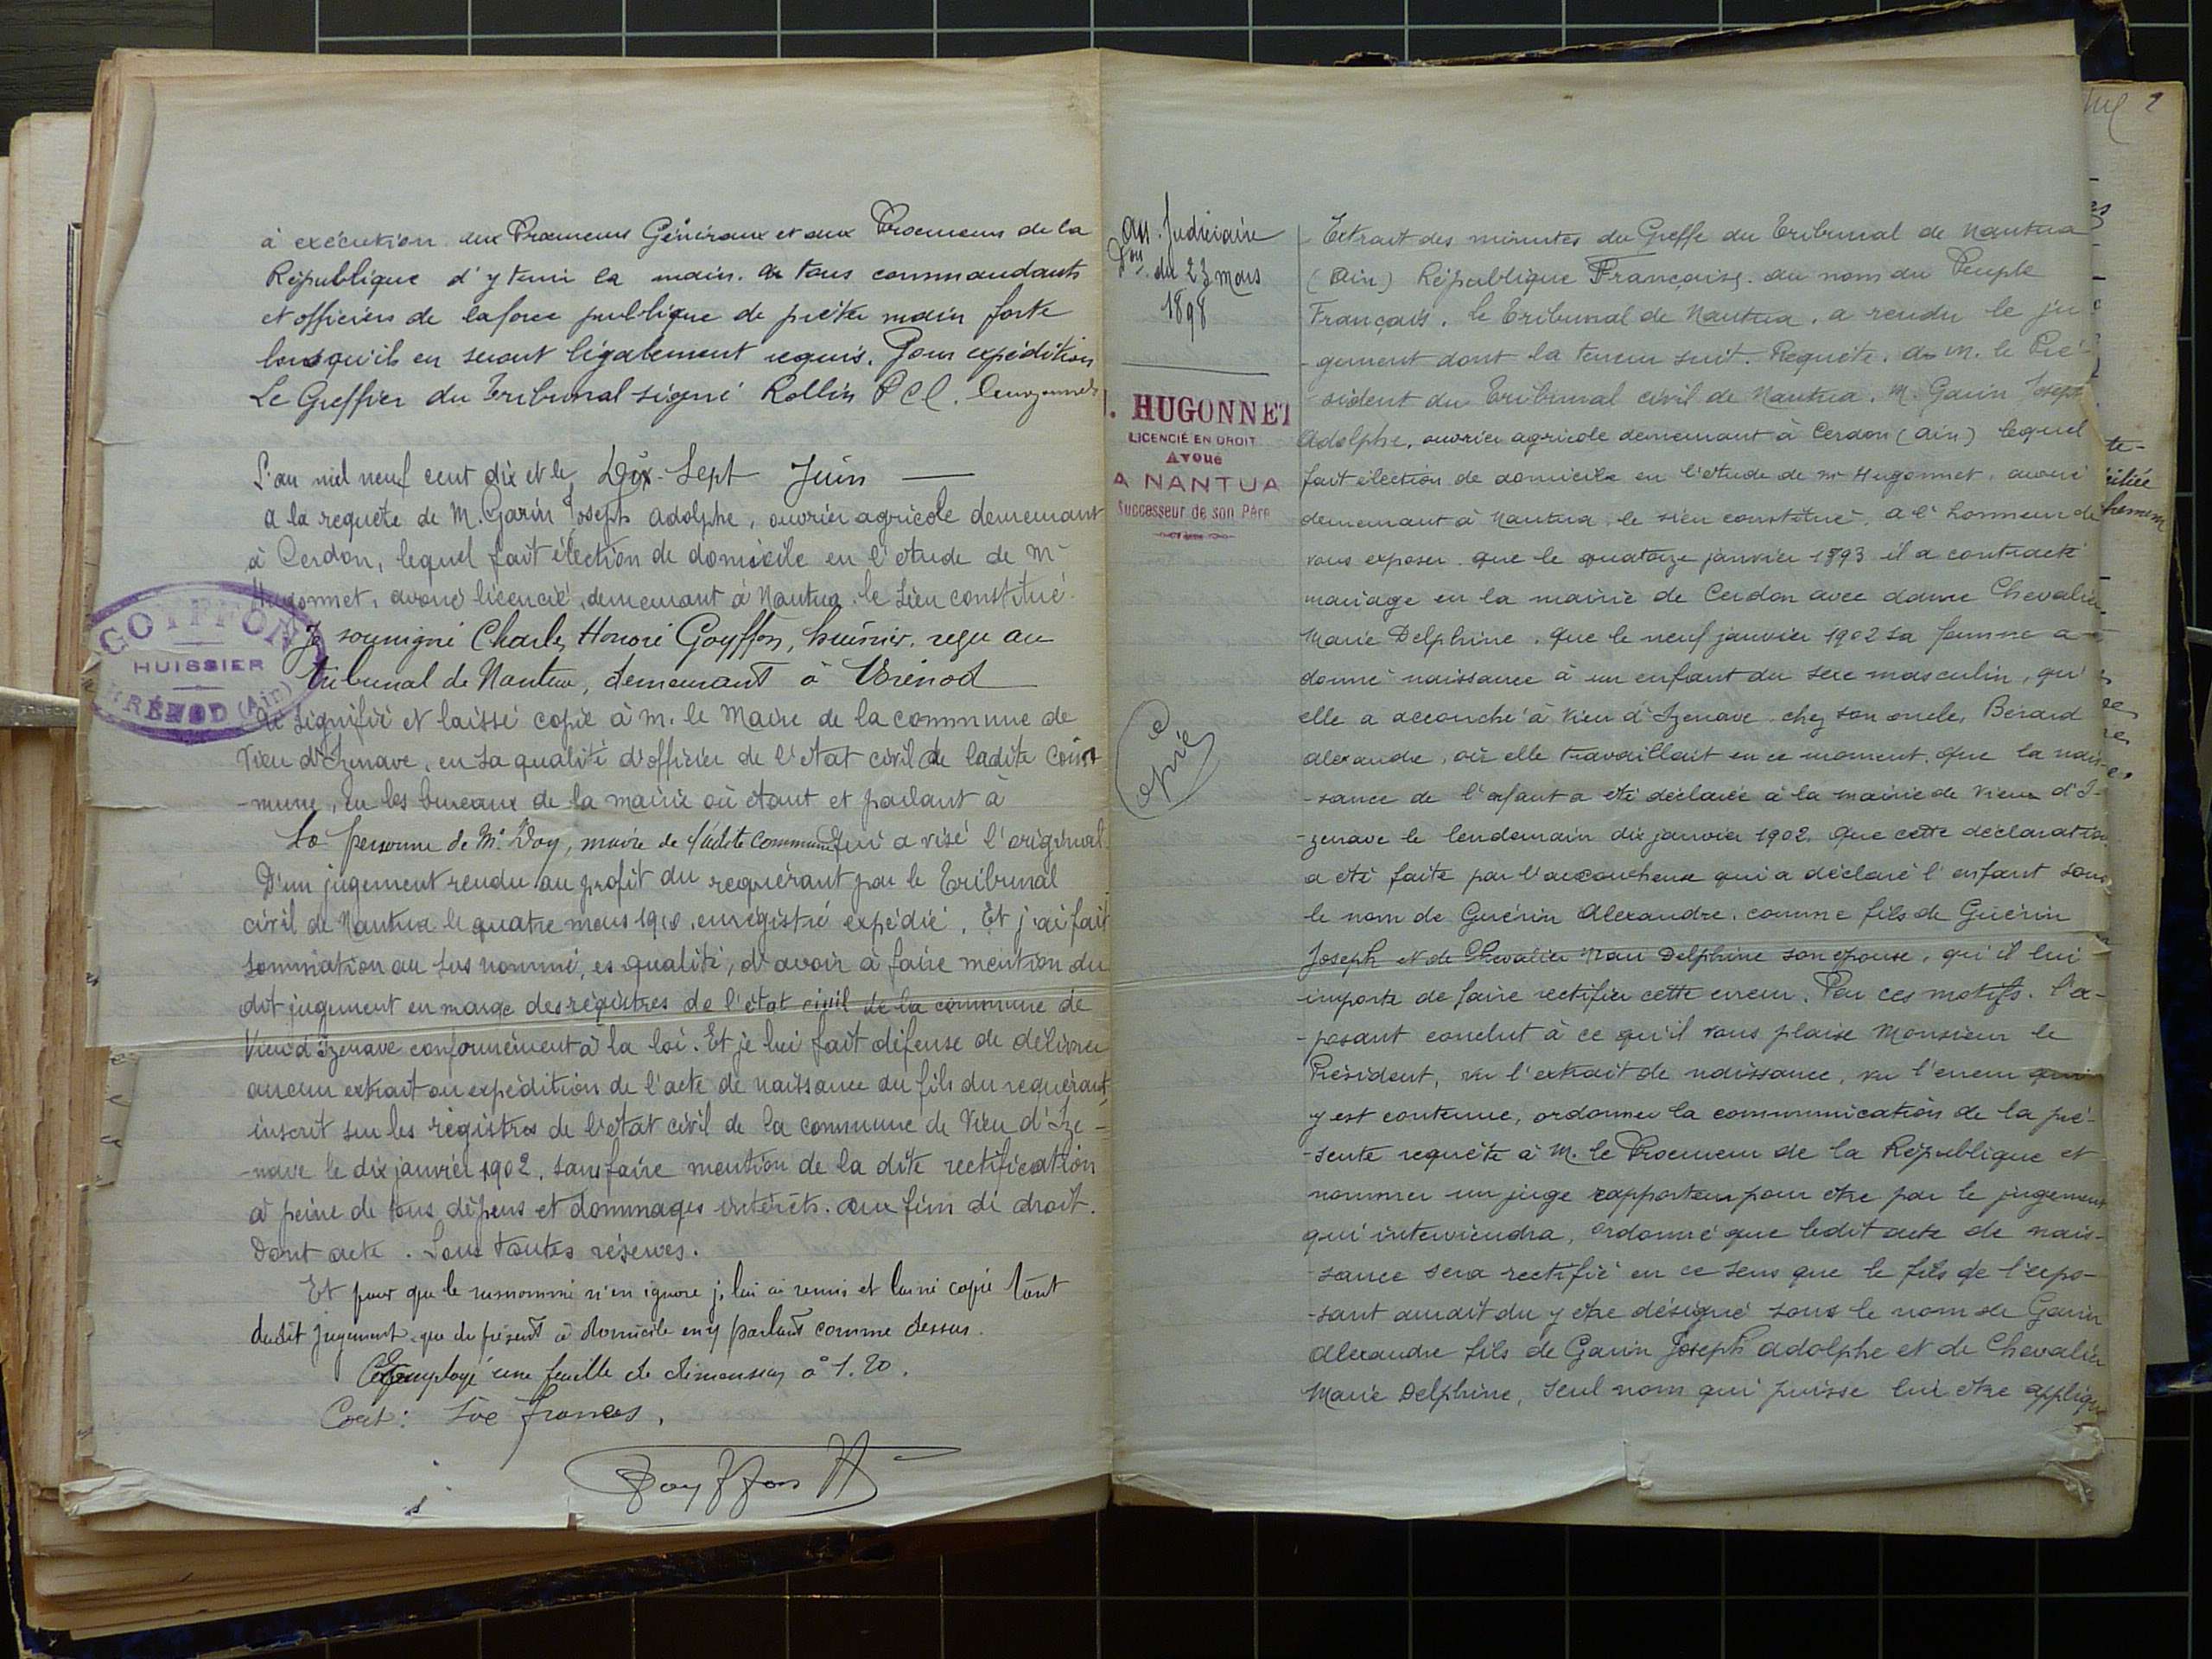 à exécution aux Procureurs Généraux et aux Procureurs de la
République d'y tenir la main. à tous commandants
et officiers de la force publique de prêter main forte
lorsqu'ils en seront légalement requis. Pour expédition
Le Greffier du Tribunal signé Rollin
L'an mil neuf cent dix et le Dix-Sept Juin
a la requête de M. Garin Joseph adolphe, ouvrier agricole demeurant
à Cerdon, lequel fait élection de domicile en l'étude de Me
Hugonnet, avoué licencié, demeurant à Nantua, le sien constitué.
Je soussigné Charles Honoré Goyffon, huissier, reçu au
tribunal de Nantua, demeurant à Brénod
ai signifié et laissé copie à M. le Maire de la commune de
Vieu d'Izenave, en sa qualité d'officier de l'état civil de ladite com
-mune, en les bureaux de la mairie où étant et parlant à
La personne de Mr Doy, maire de ladite commune qui a visé l'original
D'un jugement rendu au profit du requérant par le Tribunal
civil de Nantua le quatre mars 1910, enregistré expédié. Et j'ai fait
sommation au sus nommé, es qualité, d'avoir à faire mention du
dit jugement en marge des régistres de l'état civil de la commune de
Vieu d'Izenave conformément à la loi. Et je lui fait défense de délivrer
aucun extrait ou expédition de l'acte de naissance du fils du requérant,
inscrit sur les régistres de l'état civil de la commune de Vieu d'Ize-
-nave le dix janvier 1902, sans faire mention de la dite rectification
à peine de tous dépens et dommages intérêts. aux fins de droit.
Dont acte. Sous toutes réserves.
Et pour que le susnommé n'en ignore je lui ai remis et laissé copie tant
dudit jugement que du présent à domicile en y parlant comme dessus.
Employé une feuille de dimension à 1.20.
Coût: Six francs,
Goyffon H
GOYFFON
HUISSIER
BRÉNOD (Ain)
Ass. Judiciaire
Don du 23 mars
1898
J. HUGONNET
LICENCIÉ EN DROIT
Avoué
A NANTUA
Successeur de son Père
Copie
Extrait des minutes du Greffe du Tribunal de Nantua
(Ain) République Française. au nom du Peuple
Français. le Tribunal de Nantua, a rendu le ju
-gement dont la teneur suit. Requête. à M. le Pré-
-sident du Tribunal civil de Nantua. M. Garin Joseph
Adolphe, ouvrier agricole demeurant à Cerdon (Ain) lequel
fait élection de domicile en l'étude de Me Hugonnet, avoué
demeurant à Nantua, le sien constitué, a l'honneur de
vous exposer que le quatorze janvier 1893 il a contracté
mariage en la mairie de Cerdon avec dame Chevalier
Marie Delphine. Que le neuf janvier 1902 sa femme a
donné naissance à un enfant du sexe masculin, qu'
elle a accouché à Vieu d'Izenave chez son oncle, Bérard
Alexandre, où elle travaillait en ce moment, que la nais-
-sance de l'enfant a été déclarée à la mairie de Vieu d'I-
-zenave le lendemain dix janvier 1902. Que cette déclaration
a été faite par l'accoucheuse qui a déclaré l'enfant sous
le nom de Guérin Alexandre, comme fils de Guérin
Joseph et de Chevalier Marie Delphine son épouse, qu'il lui
importe de faire rectifier cette erreur. Par ces motifs. l'ex-
-posant conclut à ce qu'il vous plaise Monsieur le
Président, vu l'extrait de naissance, vu l'erreur qui
y est contenue, ordonner la communication de la pré-
-sente requête à M. le Procureur de la République et
nommer un juge rapporteur pour être par le jugement
qui interviendra, ordonné que ledit acte de nais-
-sance sera rectifié en ce sens que le fils de l'expo-
-sant aurait du y être désigné sous le nom de Garin
Alexandre fils de Garin Joseph Adolphe et de Chevalier
Marie Delphine, seul nom qui puisse lui être appliqu